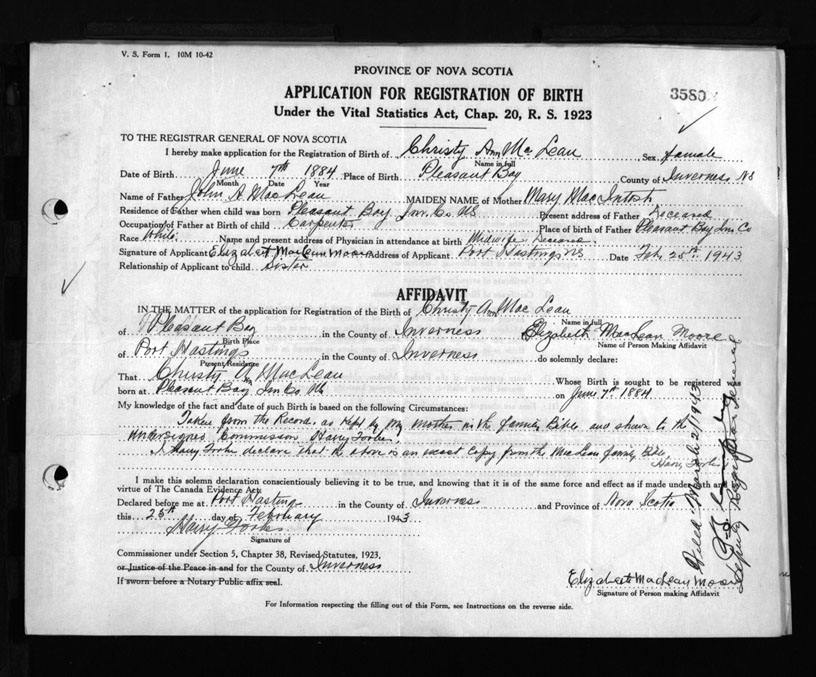 V. S. Form 1. 10M 10-42
PROVINCE OF NOVA SCOTIA
APPLICATION FOR REGISTRATION OF BIRTH
3580
Under the Vital Statistics Act, Chap. 20, R. S. 1923
TO THE REGISTRAR GENERAL OF NOVA SCOTIA
I hereby make application for the Registration of Birth of Christy Ann Mac Lean Sex female
Name in full
Date of Birth June 7th 1884 Place of Birth Pleasant Bay County of Inverness NS
Month Date Year
Name of Father John A MacLean MAIDEN NAME of Mother Mary MacIntosh
Residence of Father when child was born Pleasant Bay Inv. Co. NS Present address of Father Deceased
Occupation of Father at Birth of child Carpenter Place of Birth of Father Pleasant Bay Inv. Co
Race White Name and present address of Physician in attendance at birth Midwife Deceased
Signature of Applicant Elizabeth MacLean Moore Address of Applicant Port Hastings NS Date Feb. 25th 1943
Relationship of Applicant to child Sister
AFFIDAVIT
IN THE MATTER of the application for Registration of the Birth of Christy Ann Mac Lean
Name in full
of Pleasant Bay in the County of Inverness Elizabeth MacLean Moore
Birth Place Name of Person Making Affidavit
of Port Hastings in the County of Inverness do solemnly declare:
Present Residence
That Christy A MacLean Whose Birth is sought to be registered was
born at Pleasant Bay Inv. Co. NS on June 7th 1884
My knowledge of the fact and date of such Birth is based on the following Circumstances:
Taken from the Record as kept by my Mother in the family Bible and shown to the
undersigned Commissioner Harry
I Harry declare that the above is an exact copy from the MacLean family Bible
Harry
I make this solemn declaration conscientiously believing it to be true, and knowing that it is of the same force and effect as if made under oath and
virtue of The Canada Evidence Act.
Declared before me at Port Hastings in the County of Inverness and Province of Nova Scotia
this 25th day of February 1943
Harry
Signature of
Commissioner under Section 5, Chapter 38, Revised Statutes, 1923,
or Justice of the Peace in and for the County of Inverness
If sworn before a Notary Public affix seal.
Elizabeth MacLean Moore
Signature of Person making Affidavit
For Information respecting the filling out of this Form, see Instructions on the reverse side.
March 2/1943
Deputy Registrar General